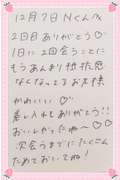 12月7日 Nくん/x
2回目ありがとう♡
1日に2回会うことに
もうあんまり抵抗感
なくなってるお兄様
かわいい♡
差し入れもありがとう!!
おいしかったね〜♡♡
次会うまでにたくさん
ためておいてね!